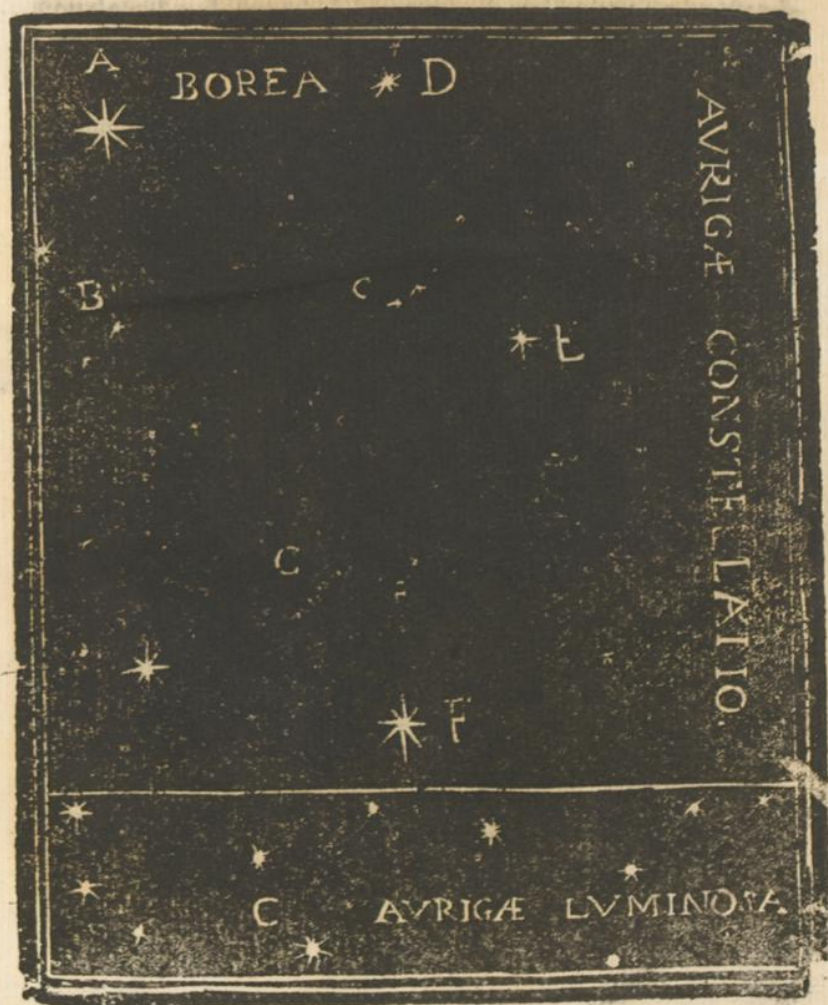 A
BOREA
D
AVRIGÆ CONSTELLATIO.
B
C
E
C
F
C
AVRIGÆ LVMINOSA